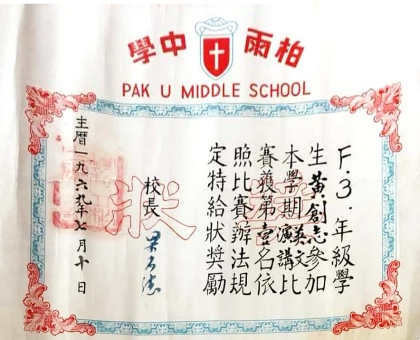 柏雨中學
PAK U MIDDLE SCHOOL
獎狀
F.3.年級學
生黃創志參加
本學期英文演講比
賽獲第壹名依
照比賽辦法規
定特給狀獎勵
校長
主曆一九六九年七月十日